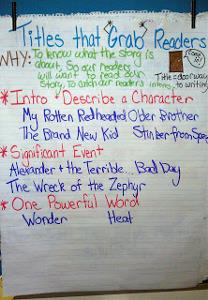 Titles that Grab Readers
WHY: To know what the story is
about. So our readers
will want to read our
story. To catch our reader's interest
Title = doorway
to writing
* Intro + Describe a Character
My Rotten Redheaded Older Brother
The Brand New Kid Stinker from Space
* Significant Event
Alexander + the Terrible... Bad Day
The Wreck of the Zephyr
* One Powerful Word
Wonder Heat